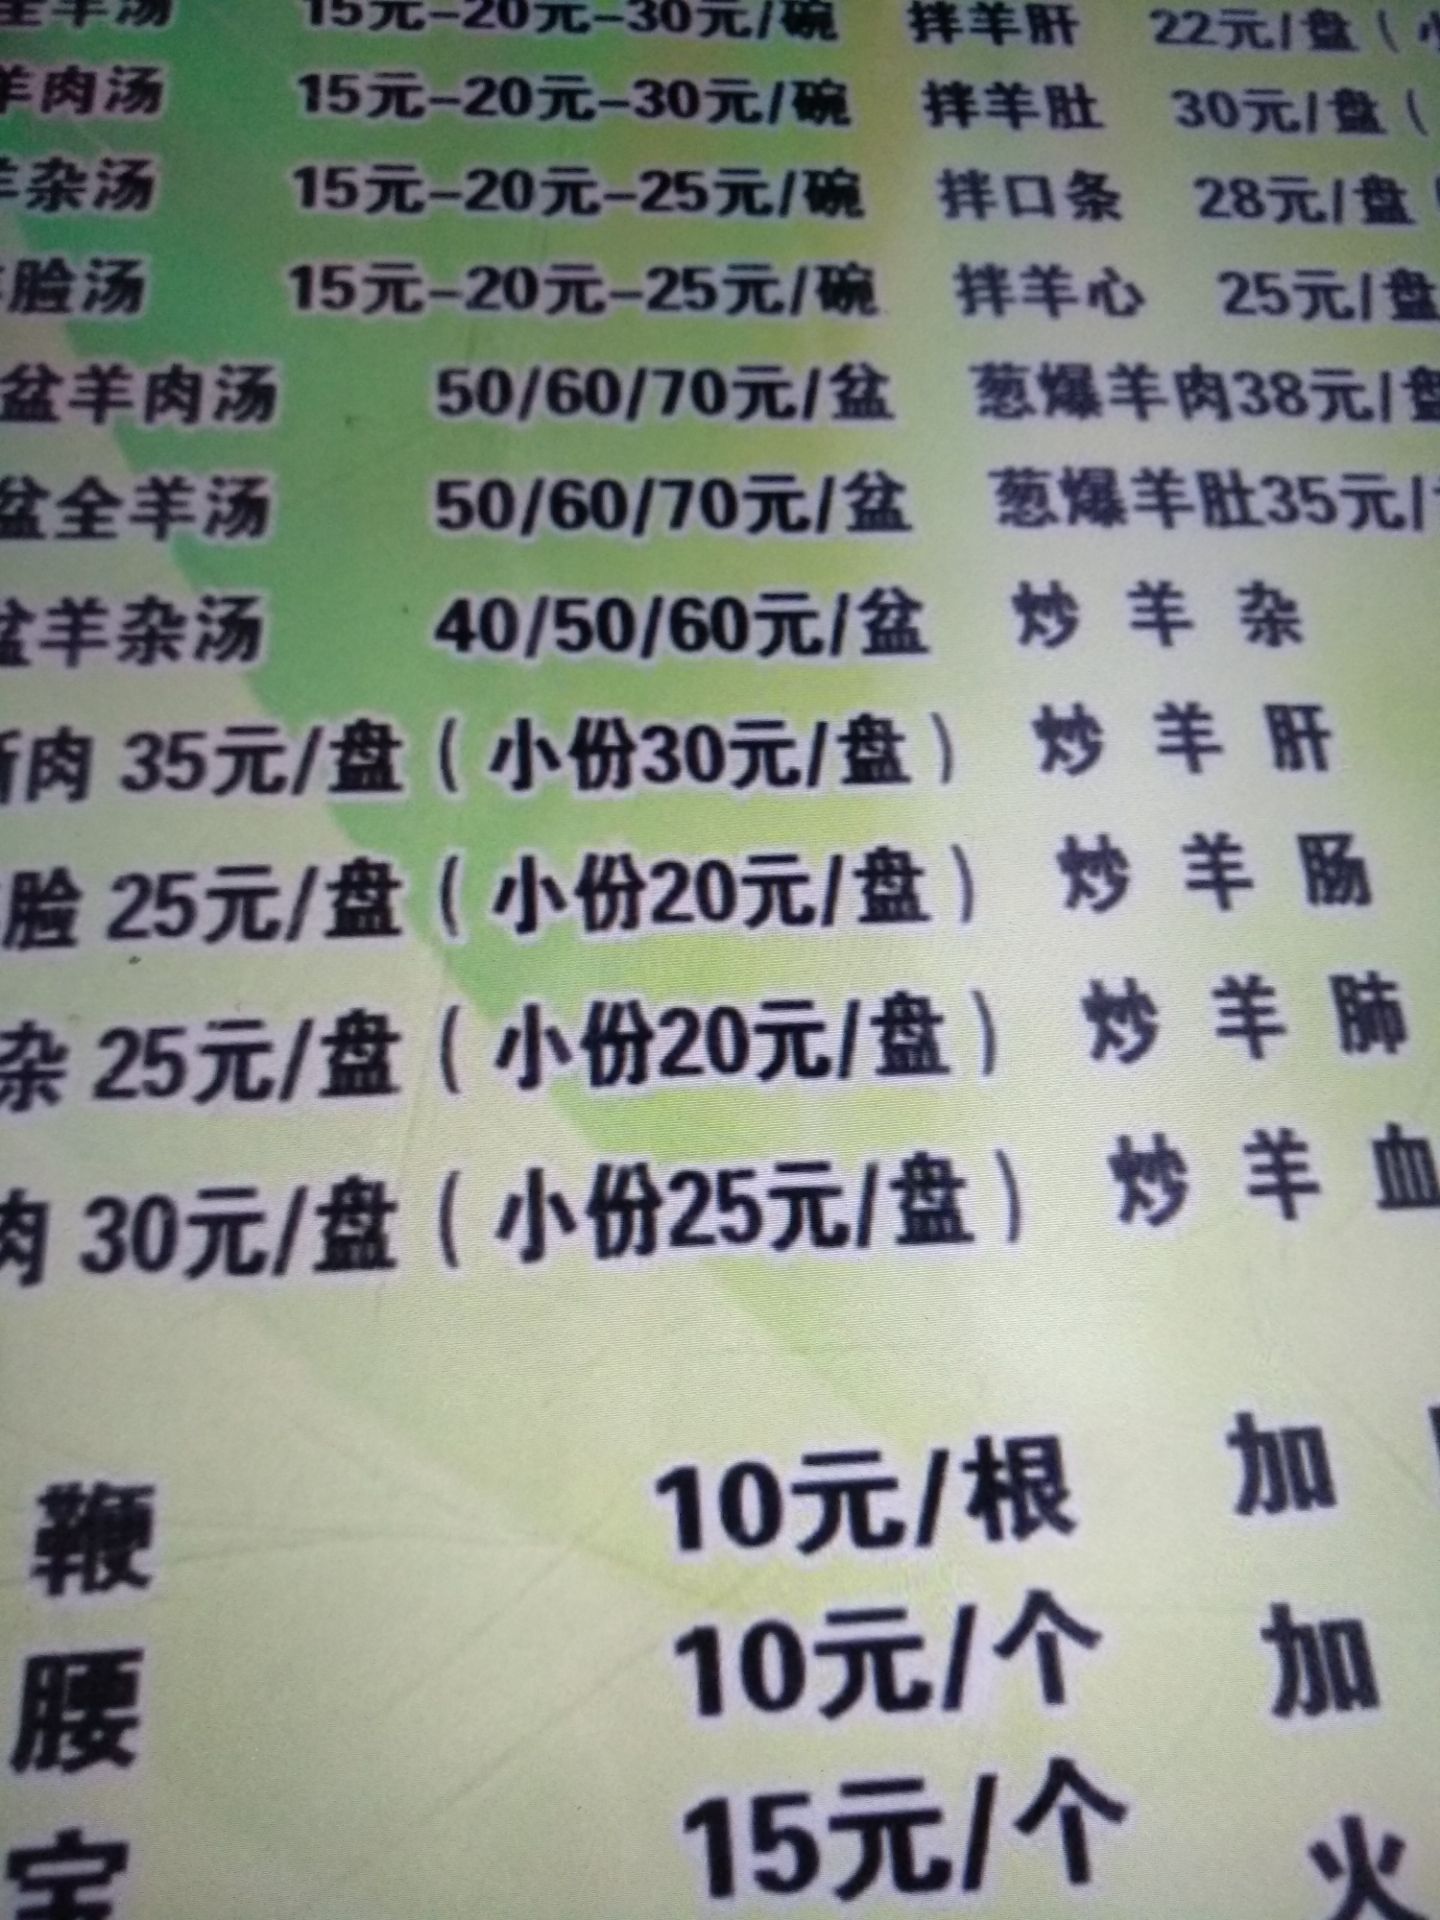 全羊汤 15元-20元-30元/碗 拌羊肝 22元/盘（小
羊肉汤 15元-20元-30元/碗 拌羊肚 30元/盘（
羊杂汤 15元-20元-25元/碗 拌口条 28元/盘
脸汤 15元-20元-25元/碗 拌羊心 25元/盘
盆羊肉汤 50/60/70元/盆 葱爆羊肉38元/盘
盆全羊汤 50/60/70元/盆 葱爆羊肚35元/
盆羊杂汤 40/50/60元/盆 炒羊杂
肉 35元/盘（小份30元/盘） 炒羊肝
脸 25元/盘（小份20元/盘） 炒羊肠
杂 25元/盘（小份20元/盘） 炒羊肺
肉 30元/盘（小份25元/盘） 炒羊血
鞭 10元/根 加
腰 10元/个 加
宝 15元/个 火